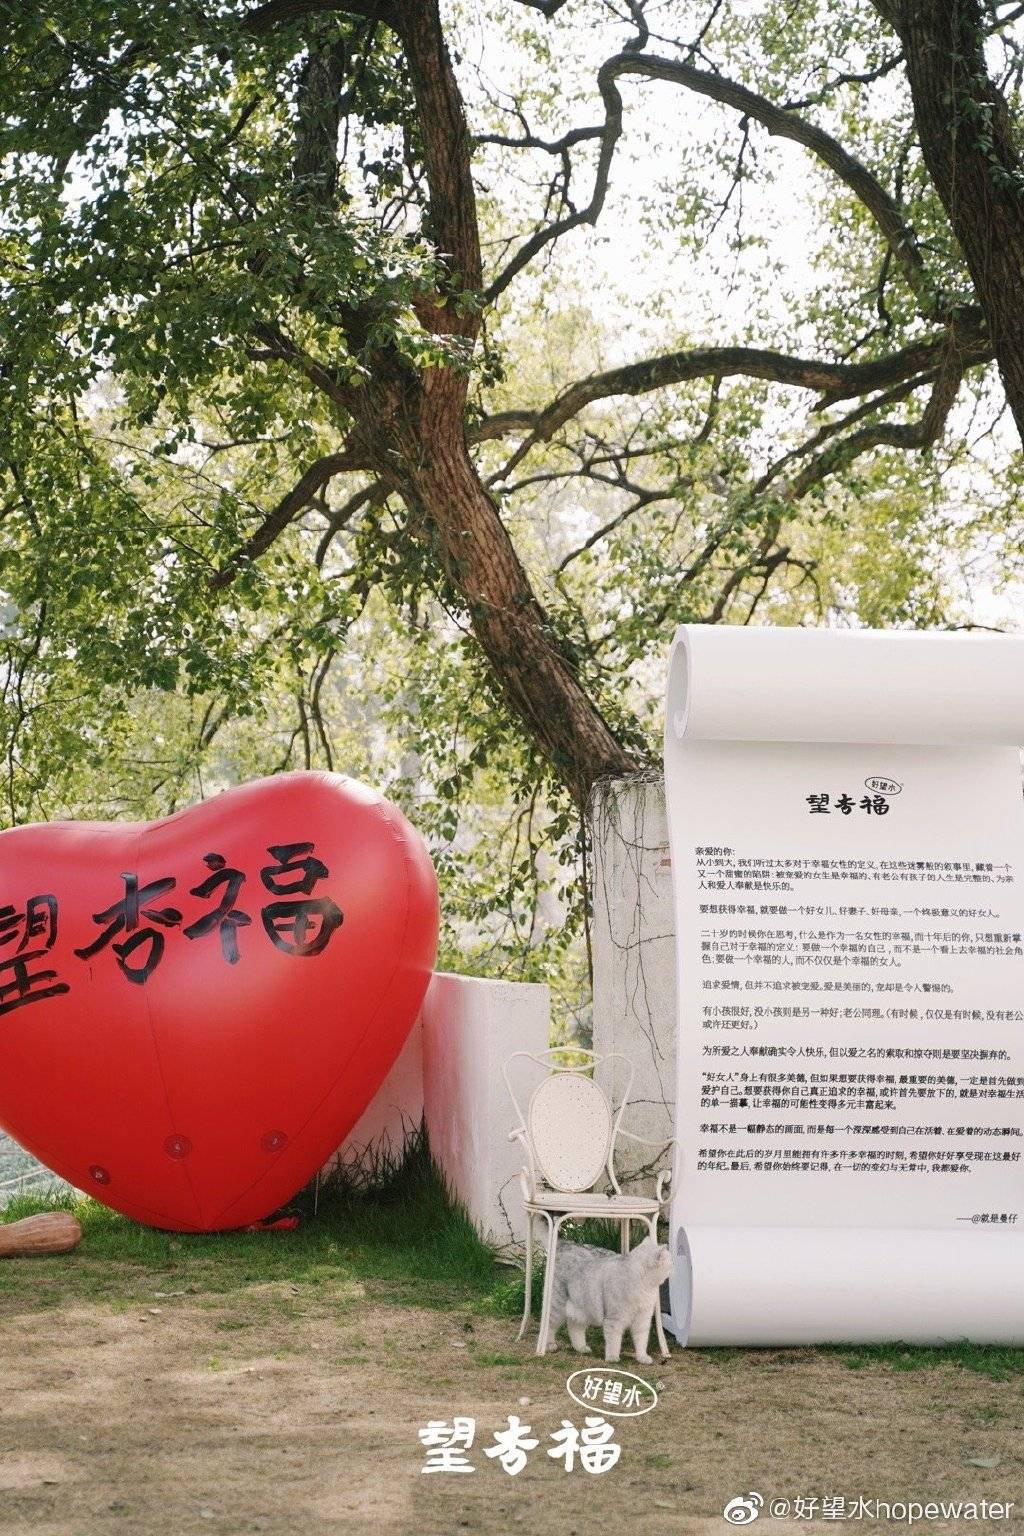 望杏福
好望水
望杏福
亲爱的你：
从小到大，我们听过太多对于幸福女性的定义。在这些迷雾般的叙事里，藏着一个
又一个甜蜜的陷阱：被宠爱的女生是幸福的、有老公有孩子的人生是完整的、为家
人和爱人奉献是快乐的。
要想获得幸福，就要做一个好女儿、好妻子、好母亲，一个终极意义的好女人。
二十岁的时候你在思考，什么是作为一名女性的幸福，而十年后的你，只想重新掌
握自己对于幸福的定义：要做一个幸福的自己，而不是一个看上去幸福的社会角
色；要做一个幸福的人，而不仅仅是个幸福的女人。
追求爱情，但并不追求被宠爱。爱是美丽的，宠却是令人警惕的。
有小孩很好，没小孩则是另一种好；老公同理。（有时候，仅仅是有时候，没有老公
或许还更好。）
为所爱之人奉献确实令人快乐，但以爱之名的索取和掠夺则是要坚决摒弃的。
“好女人”身上有很多美德，但如果想要获得幸福，最重要的美德，一定是首先做到
爱护自己。想要获得你自己真正追求的幸福，或许首先要放下的，就是对幸福生活
的单一描摹，让幸福的可能性变得多元丰富起来。
幸福不是一幅静态的画面，而是每一个深深感受到自己在活着、在爱着的动态瞬间。
希望你在此后的岁月里能拥有许多许多幸福的时刻，希望你好好享受现在这最好
的年纪。最后，希望你始终要记得，在一切的变幻与无常中，我都爱你。
——@就是曼仔
好望水®
望杏福
@好望水hopewater